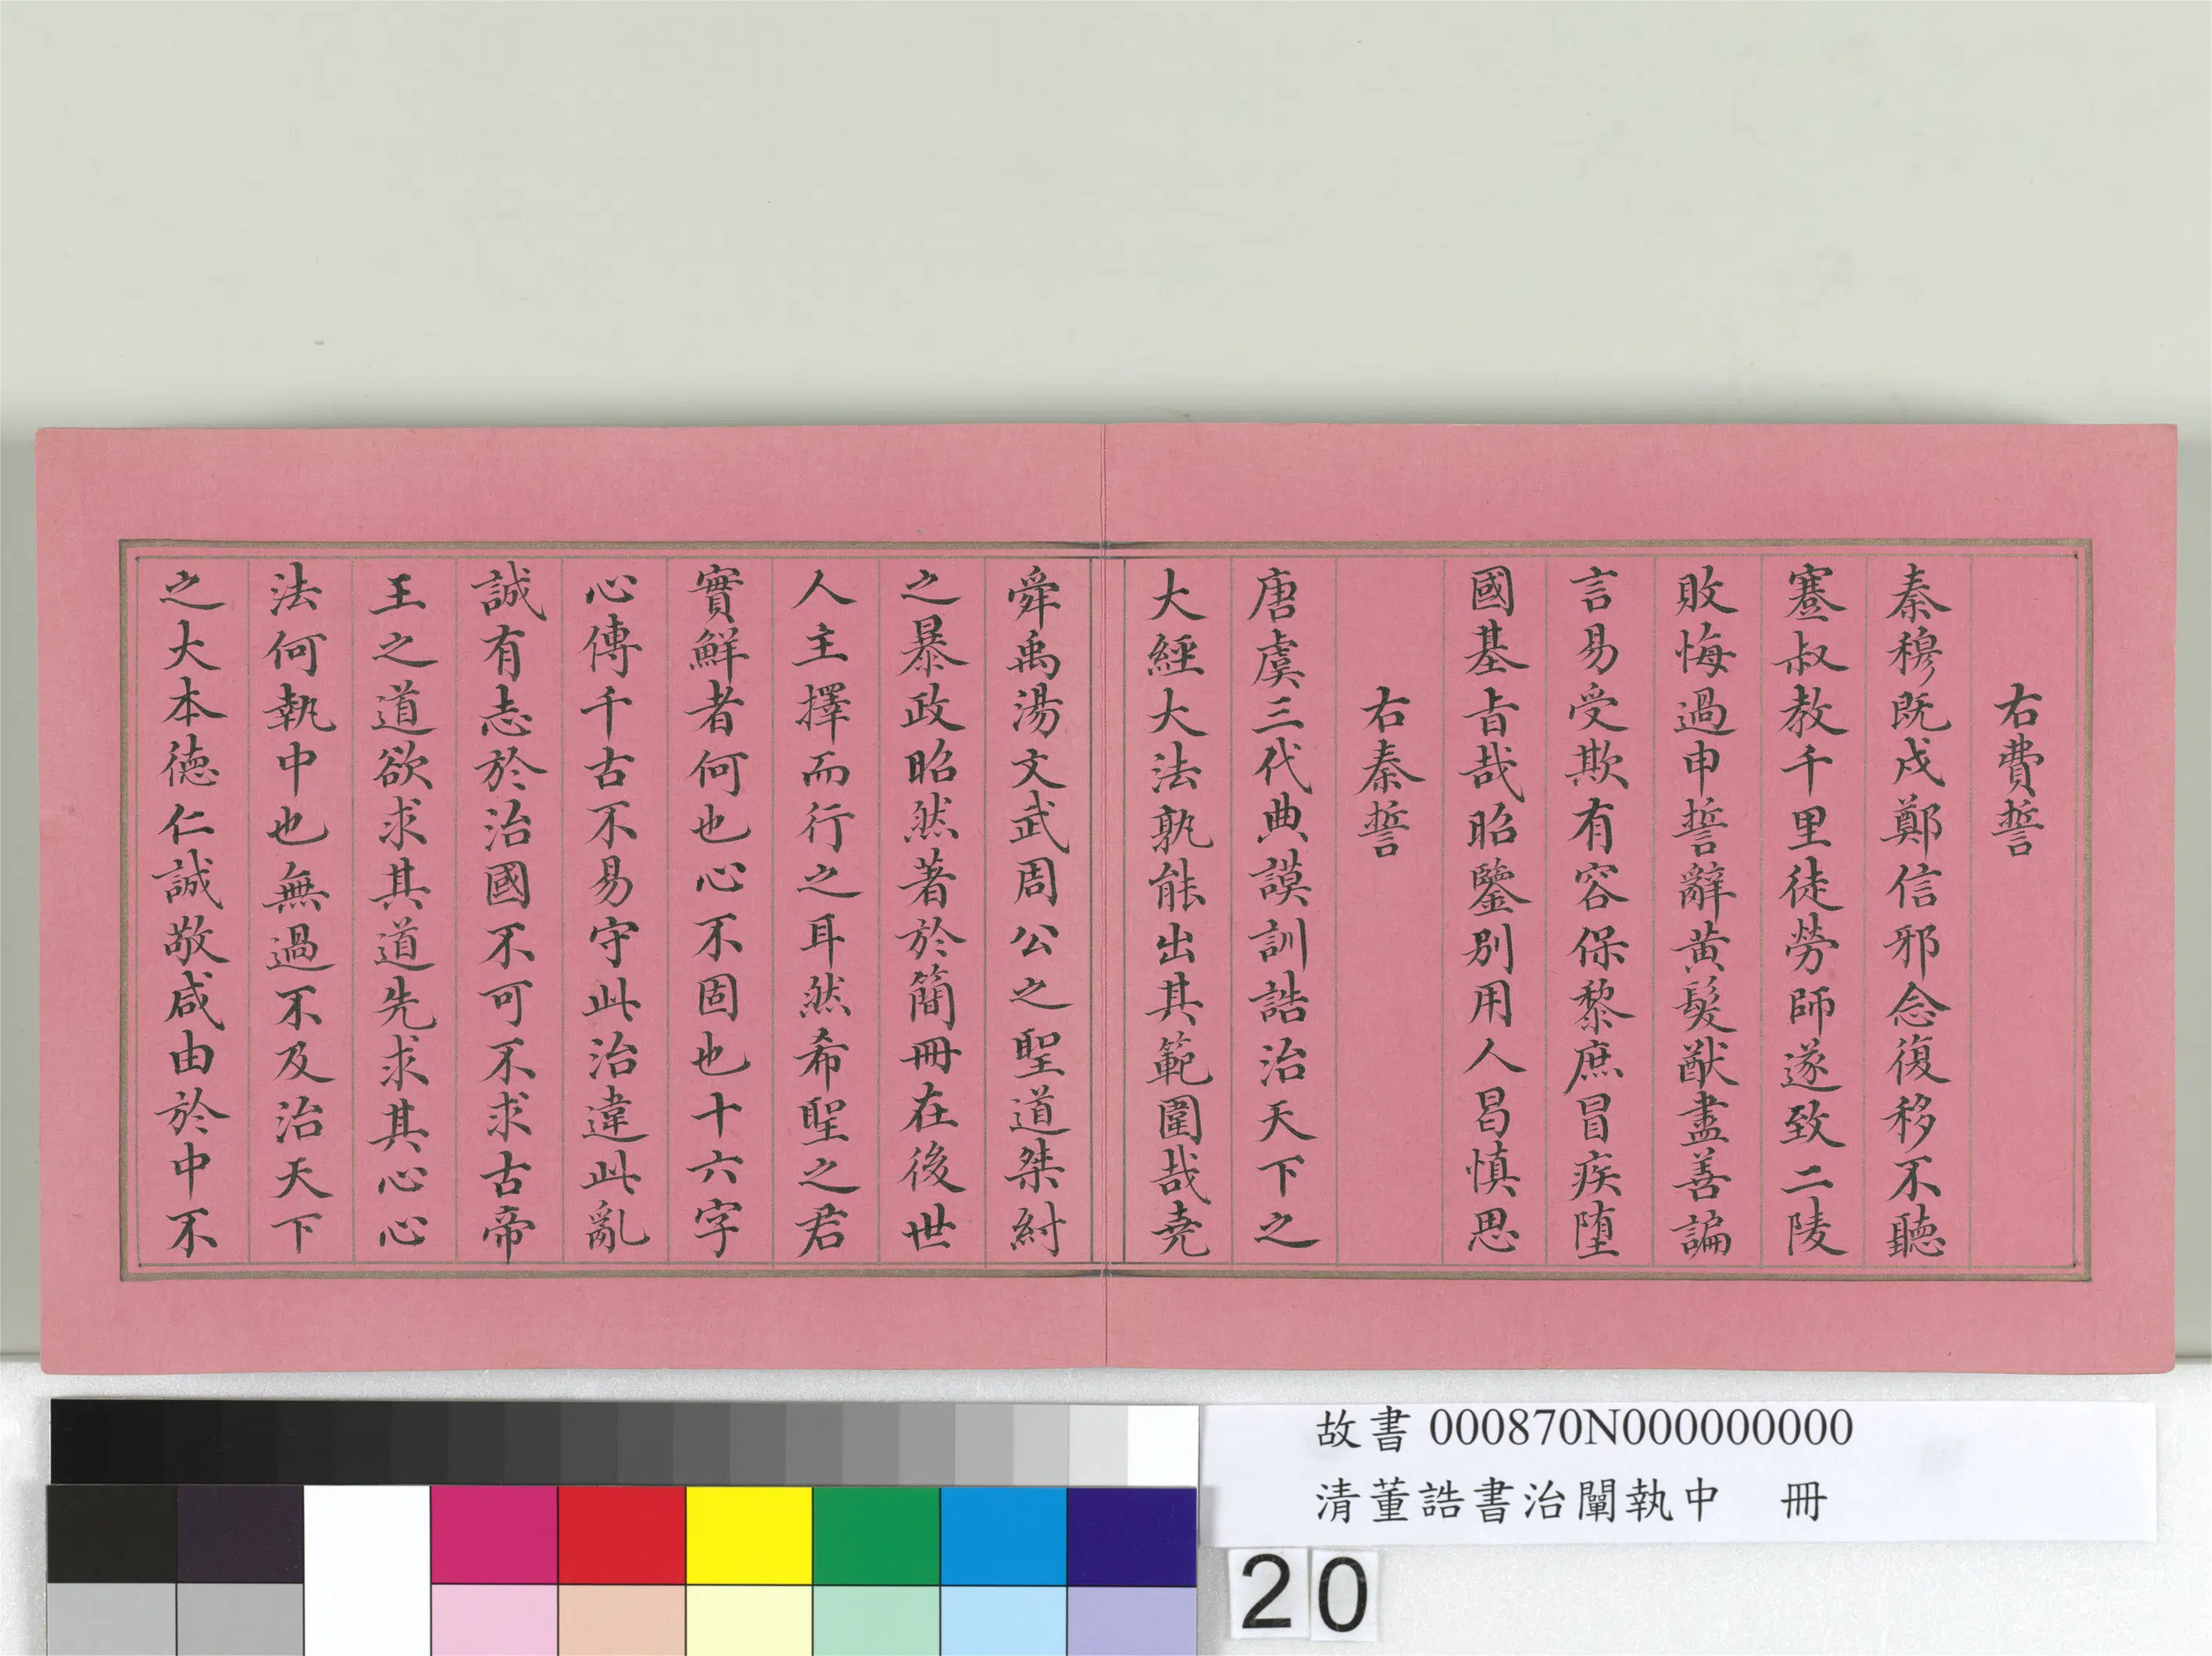 右費誓
秦穆既戍鄭信邪念復移不聽
蹇叔教千里徒勞師遂致二陵
敗悔過申誓辭黃髮猷盡善諞
言易受欺有容保黎庶冒疾墮
國基旨哉昭鑒別用人曷慎思
右秦誓
唐虞三代典謨訓誥治天下之
大經大法孰能出其範圍哉堯
舜禹湯文武周公之聖道桀紂
之暴政昭然著於簡冊在後世
人主擇而行之耳然希聖之君
實鮮者何也心不固也十六字
心傳千古不易守此治違此亂
誠有志於治國不可不求古帝
王之道欲求其道先求其心心
法何執中也無過不及治天下
之大本德仁誠敬咸由於中不
故書 000870N000000000
清董誥書治闡執中　冊
20